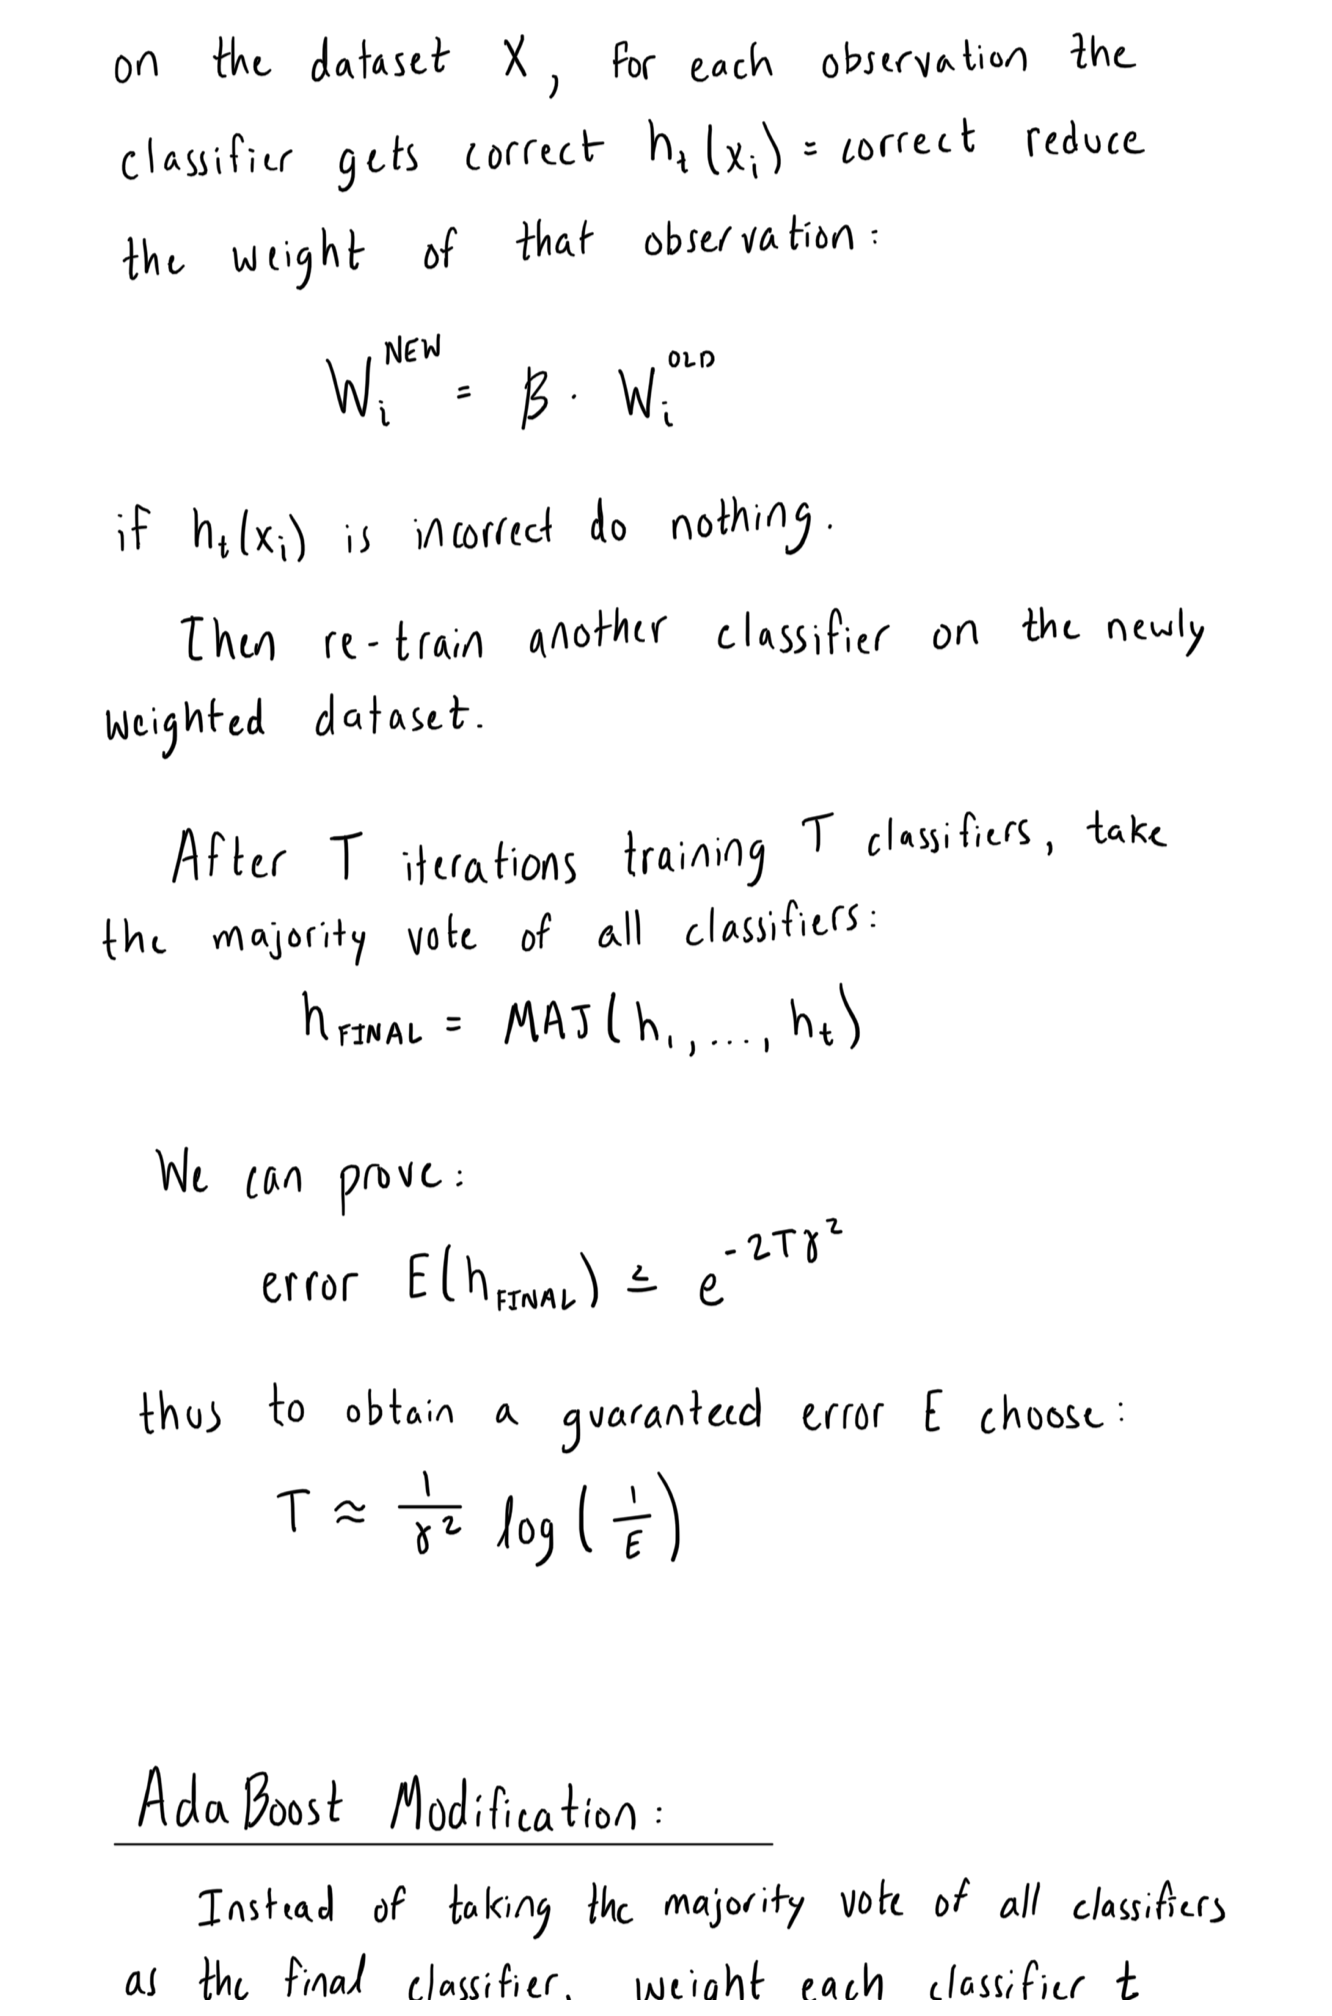 on the dataset X, for each observation the
classifier gets correct hₜ(xᵢ) = correct reduce
the weight of that observation:
Wᵢ^NEW = β · Wᵢ^OLD
if hₜ(xᵢ) is incorrect do nothing.
Then re-train another classifier on the newly
weighted dataset.
After T iterations training T classifiers, take
the majority vote of all classifiers:
h_FINAL = MAJ(h₁, ..., hₜ)
We can prove:
error E(h_FINAL) ≤ e^(-2Tγ²)
thus to obtain a guaranteed error E choose:
T ≈ 1/γ² log(1/E)
AdaBoost Modification:
Instead of taking the majority vote of all classifiers
as the final classifier, weight each classifier t